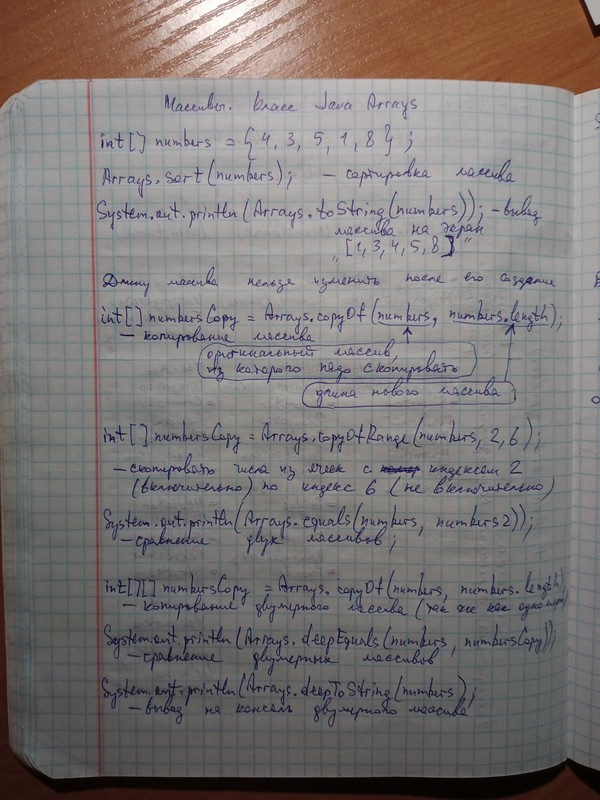 Массивы. Класс Java Arrays
int[] numbers = {4, 3, 5, 1, 8};
Arrays.sort(numbers); – сортировка массива
System.out.println(Arrays.toString(numbers)); – вывод
массива на экран
„[1, 3, 4, 5, 8]"
Длину массива нельзя изменить после его создания
int[] numbersCopy = Arrays.copyOf(numbers, numbers.length);
– копирование массива
оригинальный массив,
из которого надо скопировать
длина нового массива
int[] numbersCopy = Arrays.copyOfRange(numbers, 2, 6);
– скопировать числа из ячеек с индексом 2
(включительно) по индекс 6 (не включительно)
System.out.println(Arrays.equals(numbers, numbers2));
– сравнение двух массивов;
int[][] numbersCopy = Arrays.copyOf(numbers, numbers.length)
– копирование двумерного массива (так же как
System.out.println(Arrays.deepEquals(numbers, numbersCopy));
– сравнение двумерных массивов
System.out.println(Arrays.deepToString(numbers);
– вывод на консоль двумерного массива